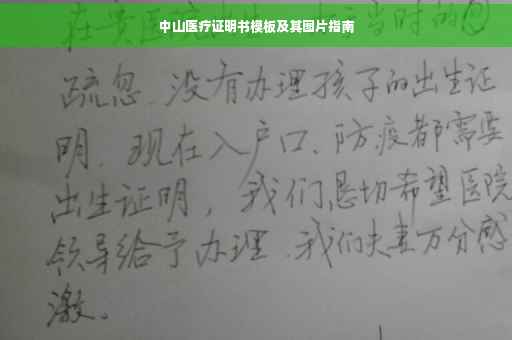 中山医疗证明书模板及其图片指南
在贵医院出生,
当时的
疏忽、没有办理孩子的出生证
明、现在入户口、防疫都需要
出生证明，我们恳切希望医院
领导给予办理、我们夫妻万分感
激。